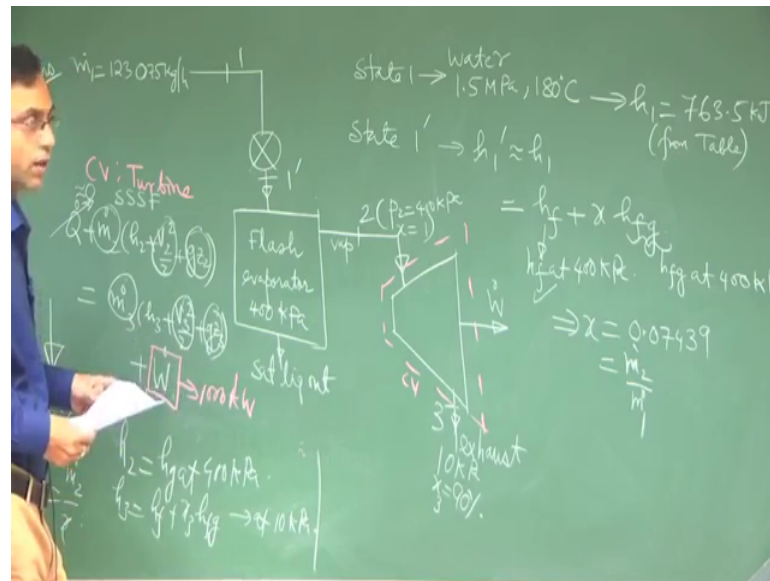 ṁ1 = 123075 kg/h
1
1'
CV: Turbine
≈0 SSSF
Q̇ + ṁ2 (h2 + V2²/2 + gz2)
= ṁ3 (h3 + V3²/2 + gz3)
+ Ẇ → 1000 kW
h2 = hg at 400 kPa.
h3 = hf + x3 hfg → at 10 kPa.
Flash
evaporator
400 kPa
sat liq out
vap
2 (P2 = 400 kPa
x = 1)
Ẇ
CV
3
exhaust
10 kPa
x3 = 90%.
State 1 → Water
1.5 MPa, 180°C → h1 = 763.5 kJ
(from Table)
State 1' → h1' ≈ h1
= hf + x hfg
hf at 400 kPa. hfg at 400 k
⇒ x = 0.07439
= ṁ2
ṁ1